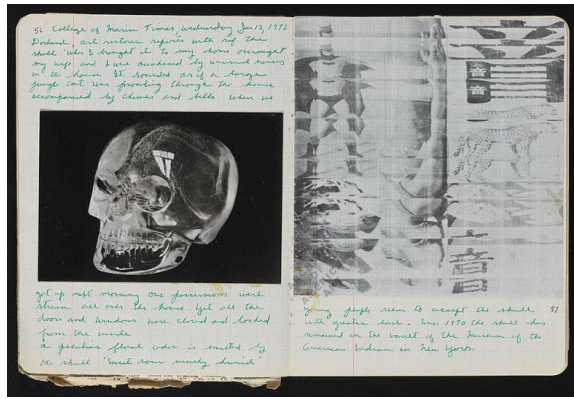 56 College of Marin Times, Wednesday Jan 13, 1973
Dorland art restorer reports with rég the
skull "When I brought it to my home overnight
my wife and I were awakened by unusual noises
in the house. It sounded as if a large
jungle cat was prowling through the house
accompanied by chimes and bells. When we
got up next morning our possessions were
strewn all over the house. Yet all the
doors and windows were closed and locked
from the inside
a peculiar floral odor is emitted by
the skull
young people seem to accept the skull
with greater ease. Since 1970 the skull has
remained in the vault of the Museum of the
American Indian in New York.
57
音
音